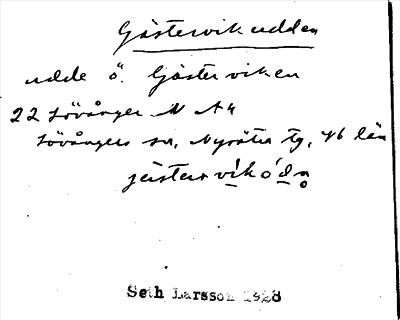 Gästervikudden
udde ö. Gästerviken
22 Lövånger M A 4
Lövångers sn, Nysätra tg, Vb län
jästərvikόdn
Seth Larsson 1928